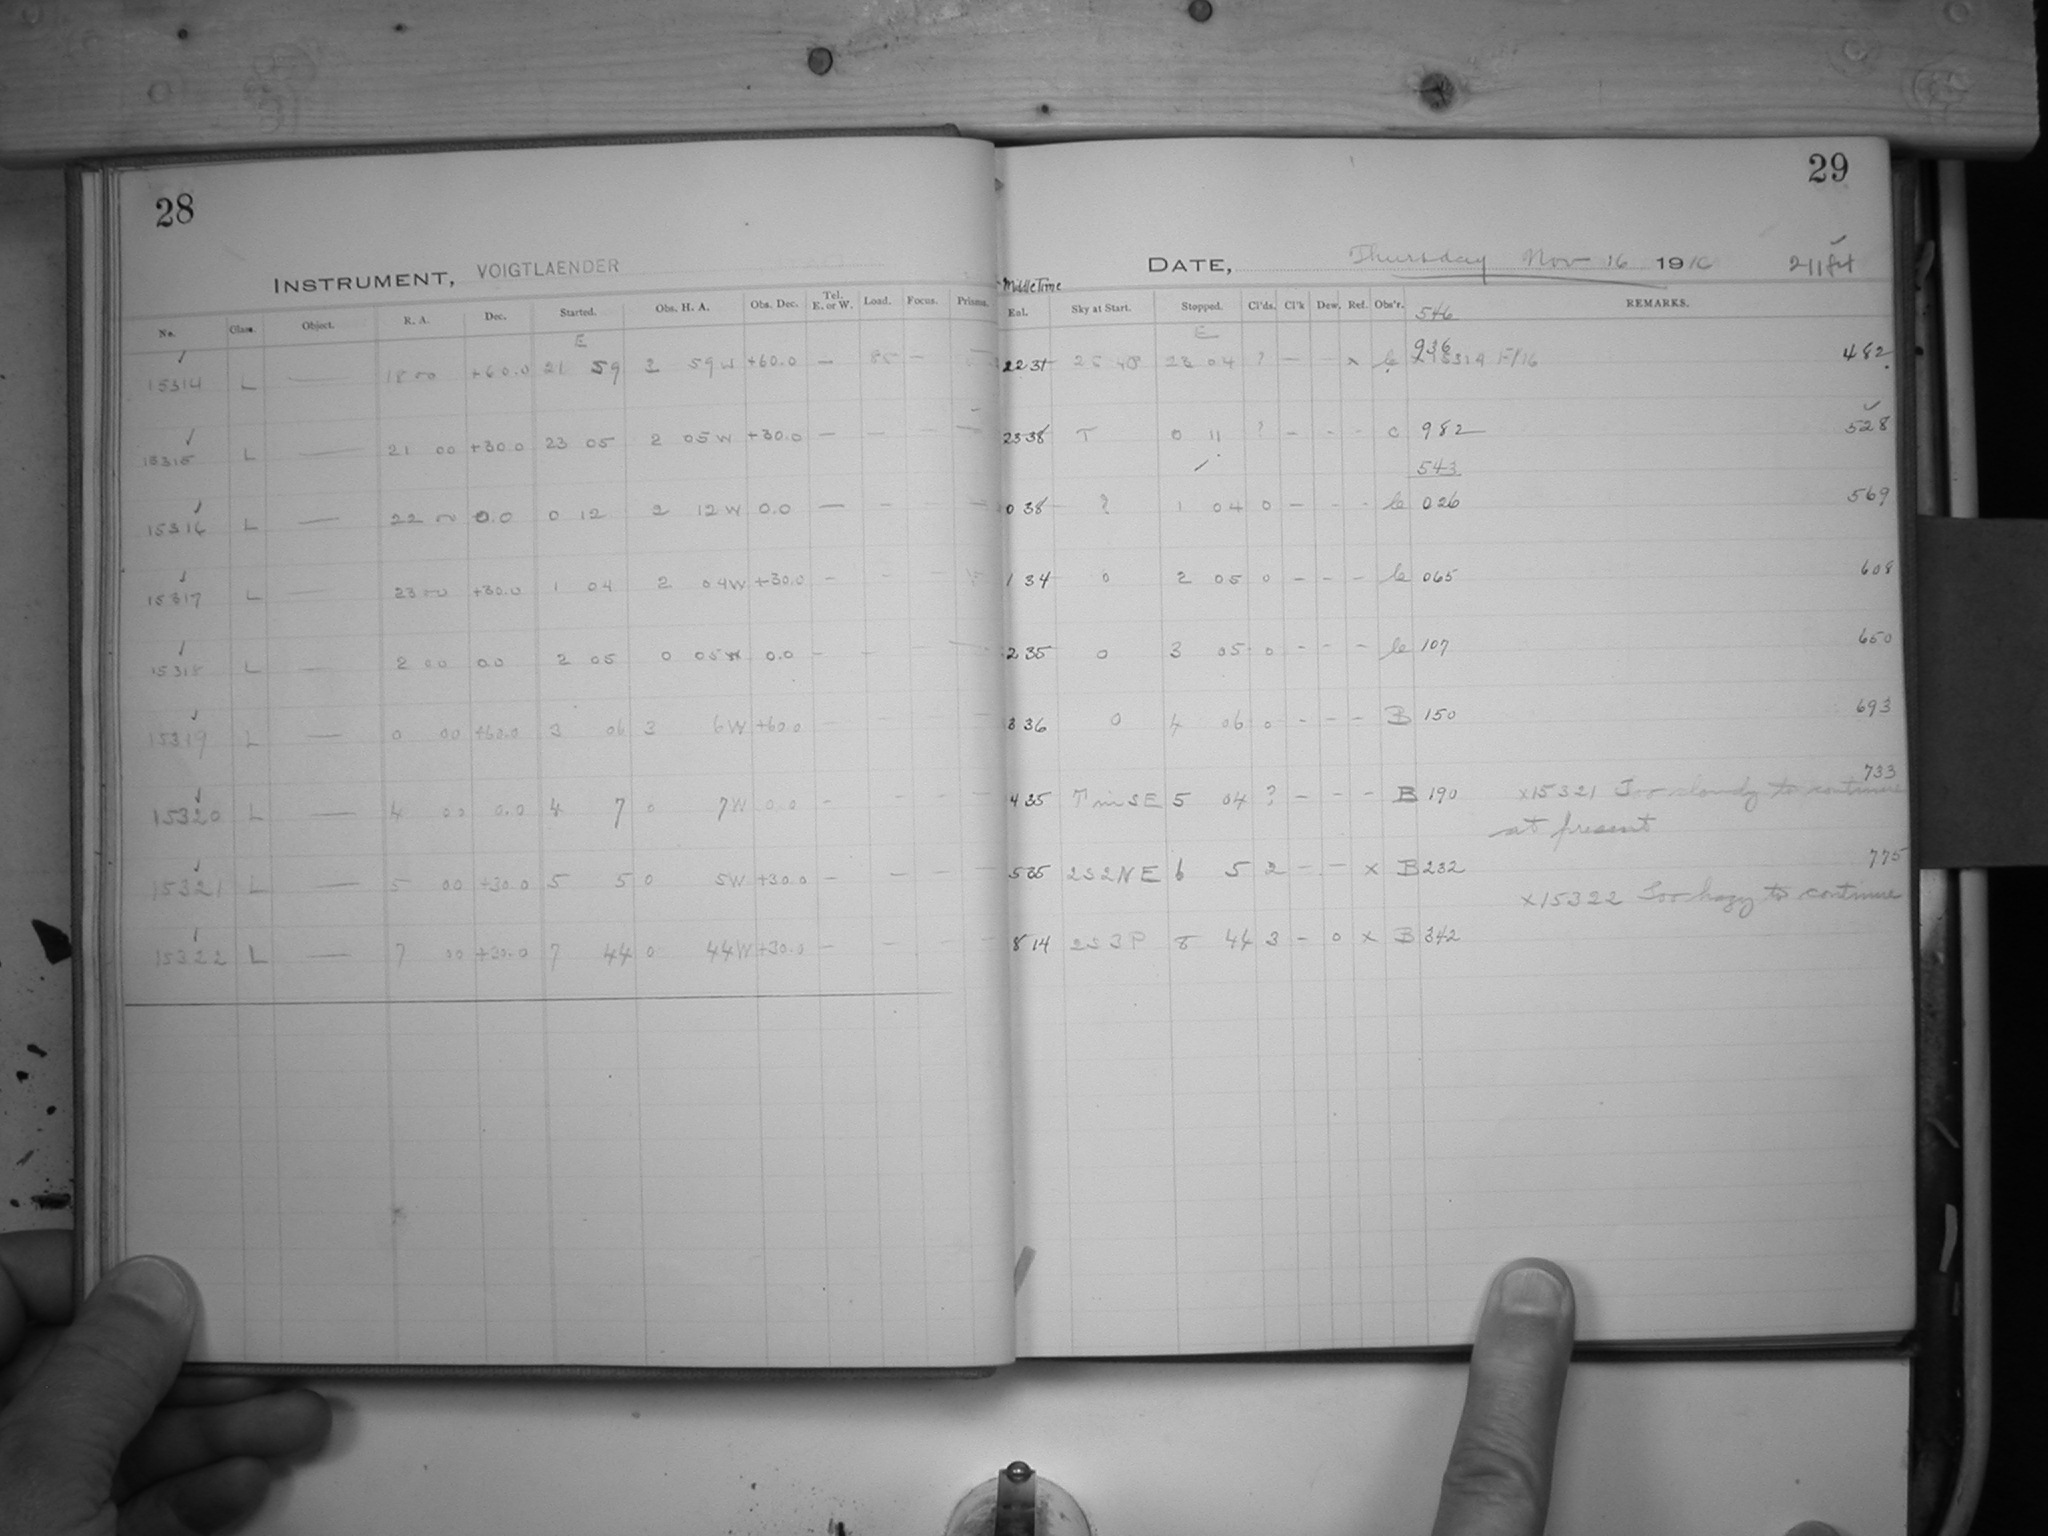 28
INSTRUMENT, VOIGTLAENDER
No. Glass. Object. R. A. Dec. Started. Obs. H. A. Obs. Dec. Tel. E. or W. Load. Focus. Prisms.
E
15314 L — 18 00 +60.0 21 59 3 59 W +60.0 — 85 — —
15315 L — 21 00 +30.0 23 05 2 05 W +30.0 — — — —
15316 L — 22 00 0.0 0 12 2 12 W 0.0 — — — —
15317 L — 23 00 +30.0 1 04 2 04 W +30.0 — — —
15318 L — 2 00 0.0 2 05 0 05 W 0.0 — — — —
15319 L — 0 00 +60.0 3 06 3 6 W +60.0 — — — —
15320 L — 4 00 0.0 4 7 0 7 W 0.0 — — — —
15321 L — 5 00 +30.0 5 5 0 5 W +30.0 — — — —
15322 L — 7 00 +30.0 7 44 0 44 W +30.0 — — — —
29
DATE, Thursday Nov 16 1916
Middle Time
Eal. Sky at Start. Stopped. Cl'ds. Cl'k Dew. Ref. Obs'r. REMARKS.
546
E
22 31 23 04 ? — — x 936 x15314 F/16 482
23 38 T 0 11 ? — - - c 982 528
543
0 38 ? 1 04 0 — - - le 026 569
1 34 0 2 05 0 — - - le 065 608
2 35 0 3 05 0 - - - le 107 650
3 36 0 4 06 0 - - - B 150 693
733
4 35 T in SE 5 04 ? - - - B 190 x15321 Too cloudy to continue
at present
775
5 35 2S2NE 6 5 2 - - x B 232
x15322 Too hazy to continue
8 14 2S3P 8 44 3 - 0 x B 342